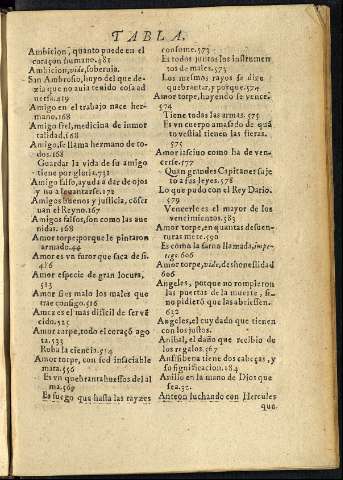 TABLA.
Ambicion, quanto puede en el
coraçon humano. 483
Ambicion, vide, soberuia.
San Ambrosio, huyo del que de-
zia que no auia tenido cosa ad
uersa. 419
Amigo en el trabajo nace her-
mano. 168
Amigo fiel, medicina de inmor
talidad. 168
Amigo, se llama hermano de to-
dos. 168
Guardar la vida de su amigo
tiene por gloria. 732
Amigo falso, ayuda a dar de ojos
y no a leuantarse. 172
Amigos buenos y justicia, cōser
uan el Reyno. 167
Amigos falsos, son como las aue
nidas. 168
Amor torpe; porque le pintaron
armado. 44
Amor es vn furor que saca de si.
486
Amor especie de gran locura,
513
Amor si es malo los males que
trae consigo. 516
Amor es el mas dificil de ser vē
cido. 525
Amor torpe, todo el coraçō ago
ta. 535
Roba la ciencia. 514
Amor torpe, con sed insaciable
mata. 556
Es vn quebrantahuessos del al
ma. 567
Es fuego que hasta las rayzes
consume. 573
Es todos juntos los instrumen
tos de males. 573
Los mesmos rayos se dize
quebrantar, y porque. 574
Amor torpe, huyendo se vence.
574
Tiene todas las armas. 575
Es vn cuerpo amasado de quā
to vestial tienen las fieras.
575
Amor lasciuo como ha de ven-
cerse. 577
Quan grandes Capitanes suje
tò a sus leyes. 578
Lo que pudo con el Rey Dario.
579
Vencerle es el mayor de los
vencimientos. 583
Amor torpe, en quantas desuen-
turas mete. 590
Es como la sarna llamada, impe-
tigo. 606
Amor torpe, vide, deshonestidad
606
Angeles, porque no rompieron
las puertas de la muerte, si-
no pidierō que las abriessen.
632
Angeles, el cuydado que tienen
con los justos.
Anibal, el daño que recibio de
los regalos. 567
Anfisibena tiene dos cabeças, y
so significacion. 184
Anillo en la mano de Dios que
sea. 32
Anteon luchando con Hercules
que.